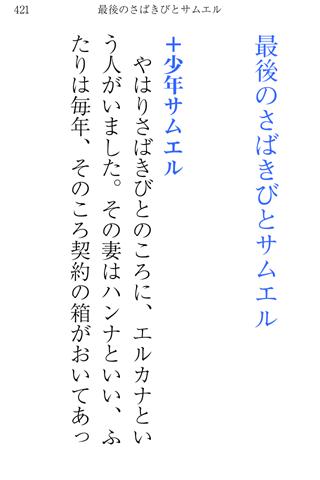 421
最後のさばきびとサムエル
最後のさばきびとサムエル
＋少年サムエル
やはりさばきびとのころに、エルカナとい
う人がいました。その妻はハンナといい、ふ
たりは毎年、そのころ契約の箱がおいてあっ